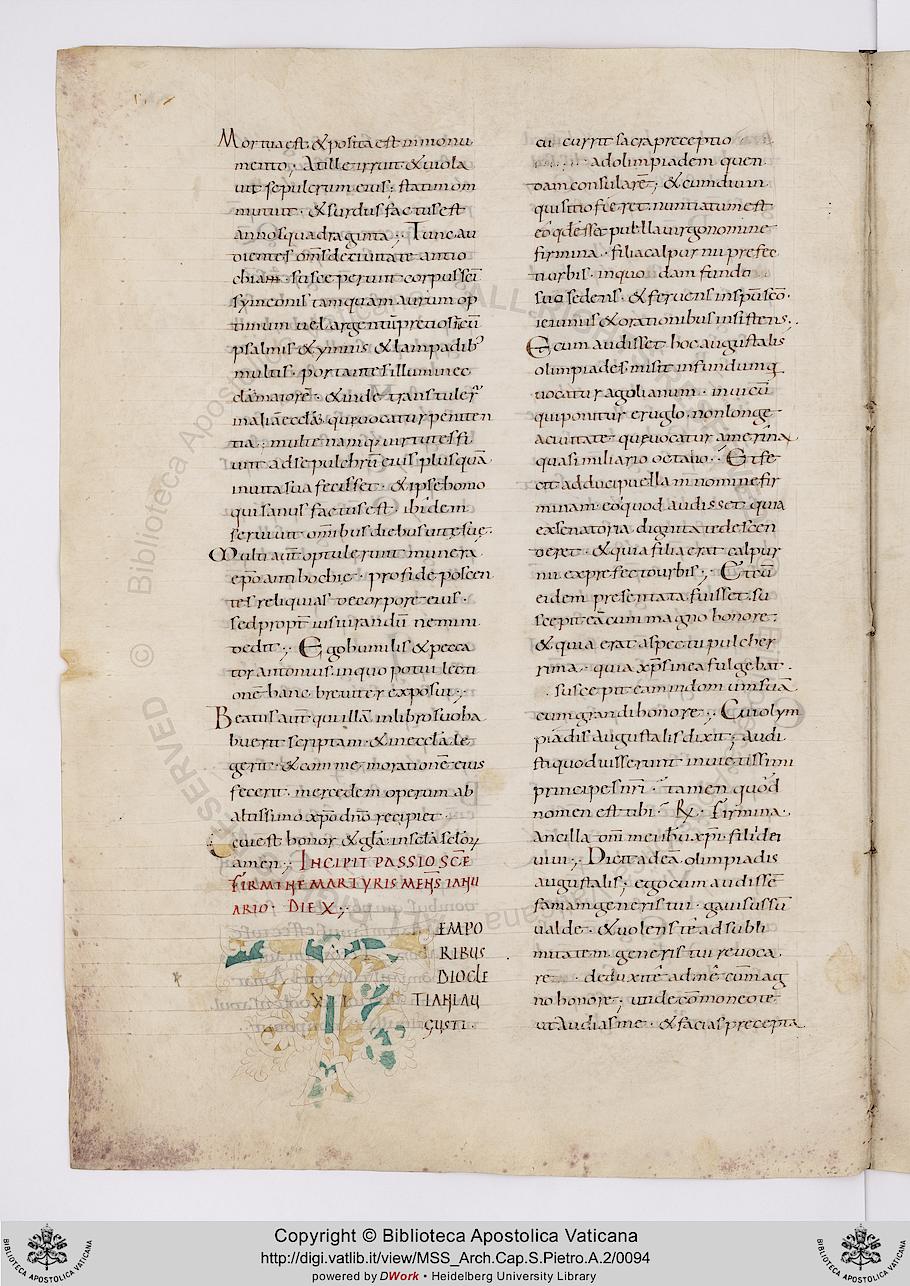 Mortua est & posita est in monu
mento; At ille irruit & uiola
uit sepulcrum eius; statim om
mutuit · & surdus factus est
annos quadraginta; Tunc au
dientes om̄s de ciuitate antio
chiam · susceperunt corpus sc̄i
symeonis tamquam aurum op
timum uel argentū pretiosū cū
psalmis & ymnis & lampadib;
multis · portantes illum in ec
cl̄a maiore · & inde transtuler̄
in aliā eccl̄ā que uocatur peniten
tia; multe namq; uirtutes fi
unt ad sepulchrū eius plus quā
in uita sua fecisset · & ipse homo
qui sanus factus est · ibidem
seruiuit om̄ibus diebus uitę suę·
Multi aūt optulerunt munera
ep̄o antihochie · pro fide poscen
tes reliquias de corpore eius ·
sed propt̄ iusiurandū nemini
dedit; Ego humilis & pecca
tor antonius in quo potui lecti
onē hanc breuiter exposui;
Beatus aūt qui illā in libro suo ha
buerit scriptam · & in eccl̄a le
gerit · & commemorationē eius
fecerit · mercedem operum ab
altissimo xp̄o dn̄o recipiet ·
Cui est honor & gl̄a in scl̄a sclōr
amen; INCIPIT PASSIO SC̄E
FIRMINE MARTYRIS MEN̄S IANU
ARIO · DIE X;
TEMPO
RIBUS
DIOCLE
TIANI AU
GUSTI ·
cū currit sacra preceptio
ad olimpiadem quen
dam consularē; & cum diu in
quisitio fieret nuntiatum est
eo qd esse puella uirgo nomine
firmina · filia calpurnii prefec
ti urbis · in quodam fundo
suo sedens · & seruiens in sp̄u sc̄o ·
ieiuniis & orationibus insistens.
Et cum audisset hoc augustalis
olimpiades misit in fundum q
uocatur agolianum · in uicū
qui ponitur eruglo · non longe
a ciuitate que uocatur amerina
quasi miliario octauo; Et fe
cit adduci puellam nomine fir
minam · eo quod audisset quia
ex senatoria dignitate descen
deret · & quia filia erat calpur
nii ex prefecto urbis; Et cū
eidem presentata fuisset · su
scepit eā cum magno honore;
& quia erat aspectu pulcher
rima · quia xp̄s in ea fulgebat ·
suscepit eam in domum suā
cum grandi honore; Cui olym
piadis augustalis dixit; audi
sti quod iusserunt inuictissimi
principes nr̄i · tamen quod
nomen est tibi · R̸ · firmina ·
ancilla dn̄i mei ihū xp̄i filii dei
uiui; Dicit ad eā olimpiadis
augustalis; ego cum audissē
famam generis tui · gauisus sū
ualde · & uolens te ad subli
mitatem generis tui reuoca
re · deduxi te ad me cum mag
no honore; unde commoneo te
ut audias me · & facias precepta